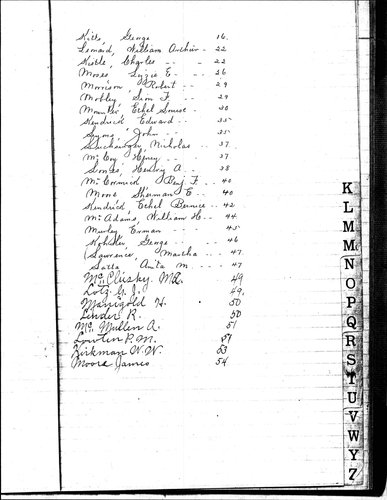 Kitts, George 16.
Lenard, William Arthur - 22
Kistle, Charles - - - 22
Moses, Lizzie E - - 26
Morrison, Robert - - 29
Mobley, Sion F. - - 29
Ethel Louise - 30
Kendrick Edward - - 35
Lyons, John - - 35
Nicholas - - 37
Mc Coy Henry - - 37
Henry A. - - 38
Mc Cormick Benj. F. - - 40
Moore Sherman E - - 40
Kendrick Ethel Bernice - - 42
Mc Adams, William H - - 44
Murley Erman - - 45
George - - 46
Lawrence, Martha - - 47
Anita M - - 47
Mc Clusky. M.L. 49
Lotz G. J. 49.
Manigold H. 50
Linder R. 50
Mc Mullen A. 51
P.M. 51
Kirkman W. W. 53
Moore James 54
K
L
M
M
N
O
P
Q
R
S
T
U
V
W
Y
Z